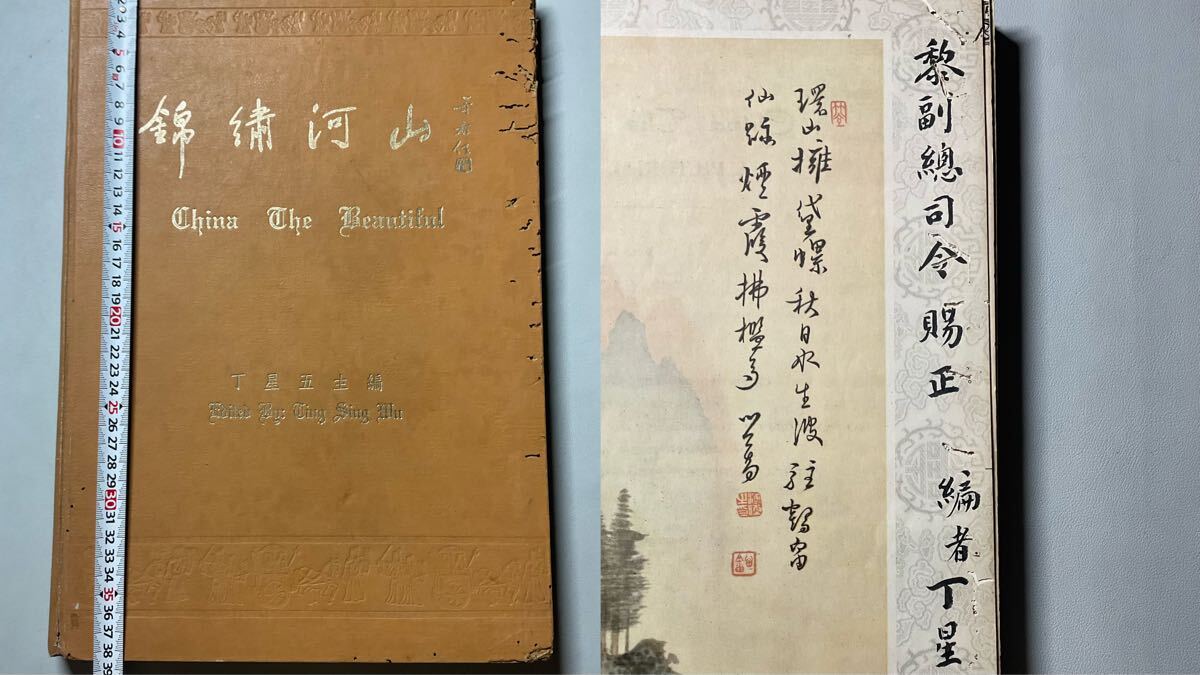 錦繡河山
于右任
China The Beautiful
丁星五主編
Edited By: Ting Sing Wu
3 4 5 6 7 8 9 10 11 12 13 14 15 16 17 18 19 20 21 22 23 24 25 26 27 28 29 30 31 32 33 34 35 36 37 38 39
黎副總司令 賜正 編者丁星
環山擁黛螺秋日水生波駐鶴留
仙跡煙霞拂檻多 心畬